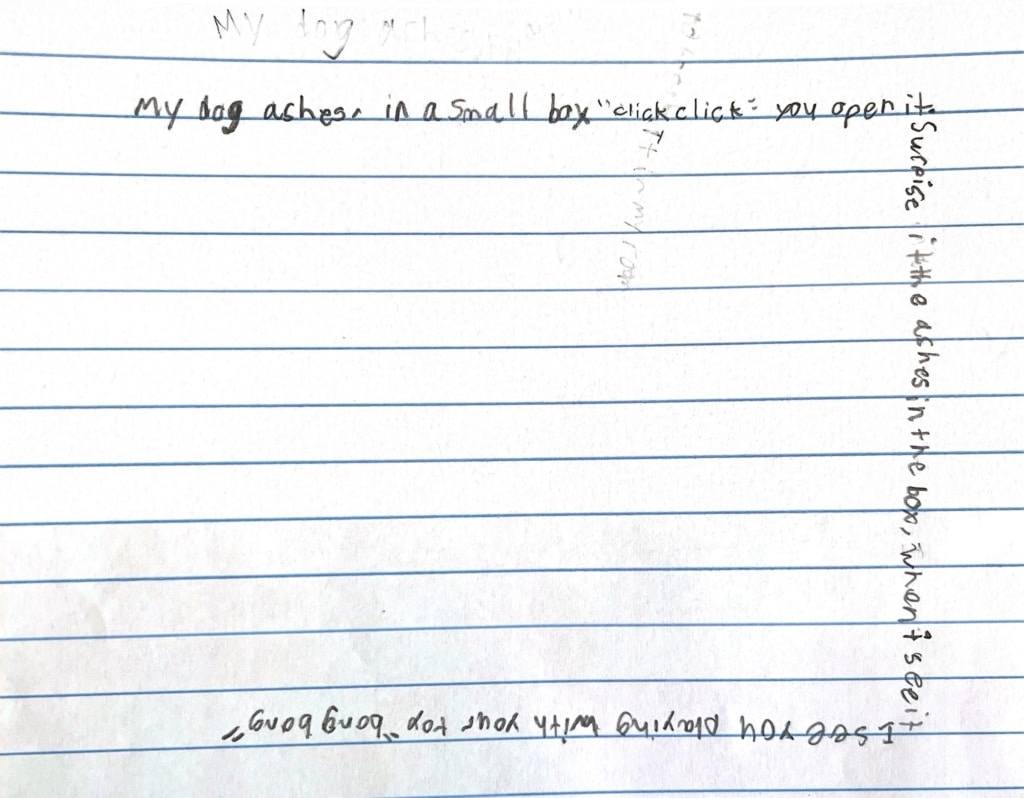 My dog ach
My dog ashes, in a small box "click click" you open it.
Surpise it the ashes in the box, when I see it
I see you playing with your toy "bong bong"
It in my room